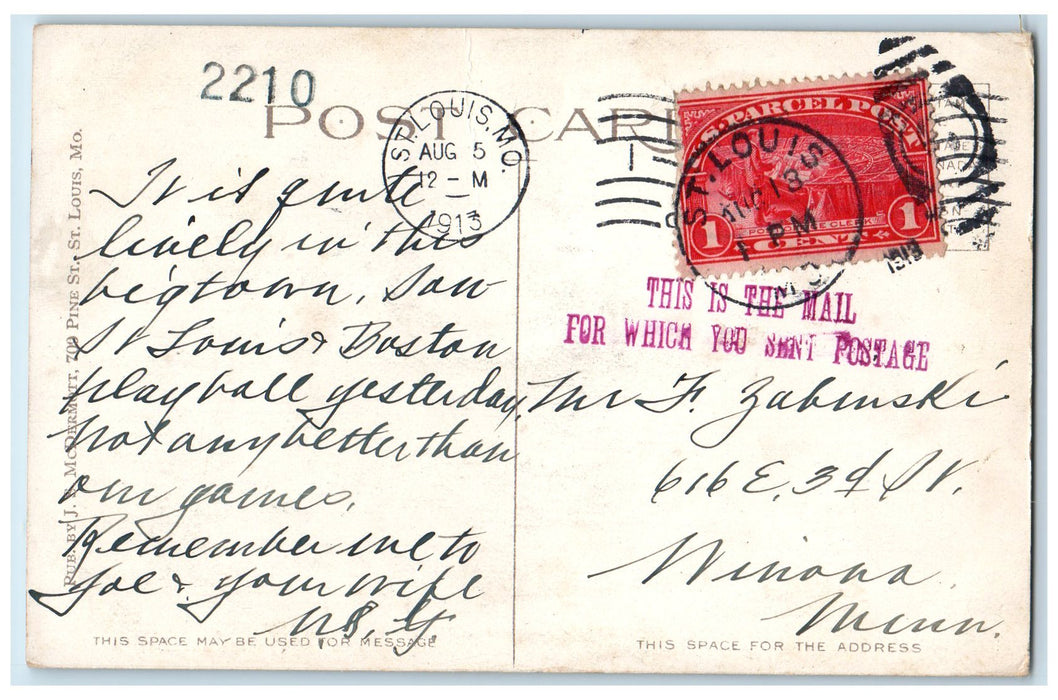 2210
POST CARD
ST. LOUIS, MO.
AUG 5
12 - M
1913
U.S. PARCEL POST
POST OFFICE CLERK
1 CENT 1
ST. LOUIS
13
1 PM
MO
1913
THIS IS THE MAIL
FOR WHICH YOU SENT POSTAGE
It is quite
lively in this
big town, Saw
St Louis & Boston
play ball yesterday,
Not any better than
our games.
Remember me to
Joe & your wife
Mr F. Zabinski
616 E. 3d St.
Winona
Minn.
PUB. BY J. McDERMOTT, 709 PINE ST., ST. LOUIS, MO.
THIS SPACE MAY BE USED FOR MESSAGE
THIS SPACE FOR THE ADDRESS